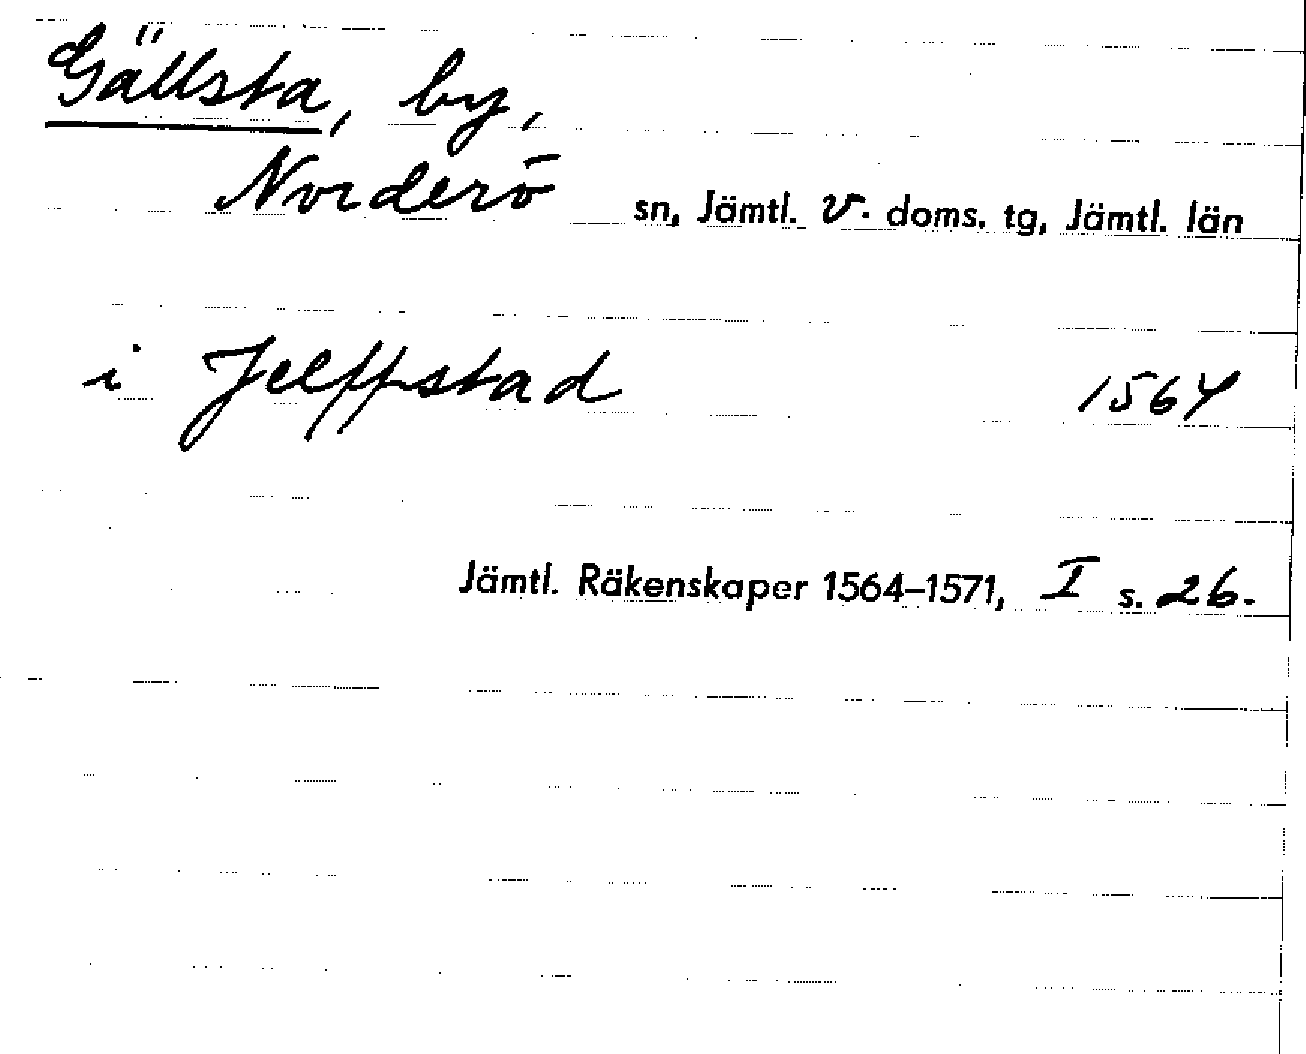 Gällsta, by,
Norderö sn, Jämtl. v. doms. tg, Jämtl. län
i Jelffstad 1564
Jämtl. Räkenskaper 1564–1571, I s. 26.